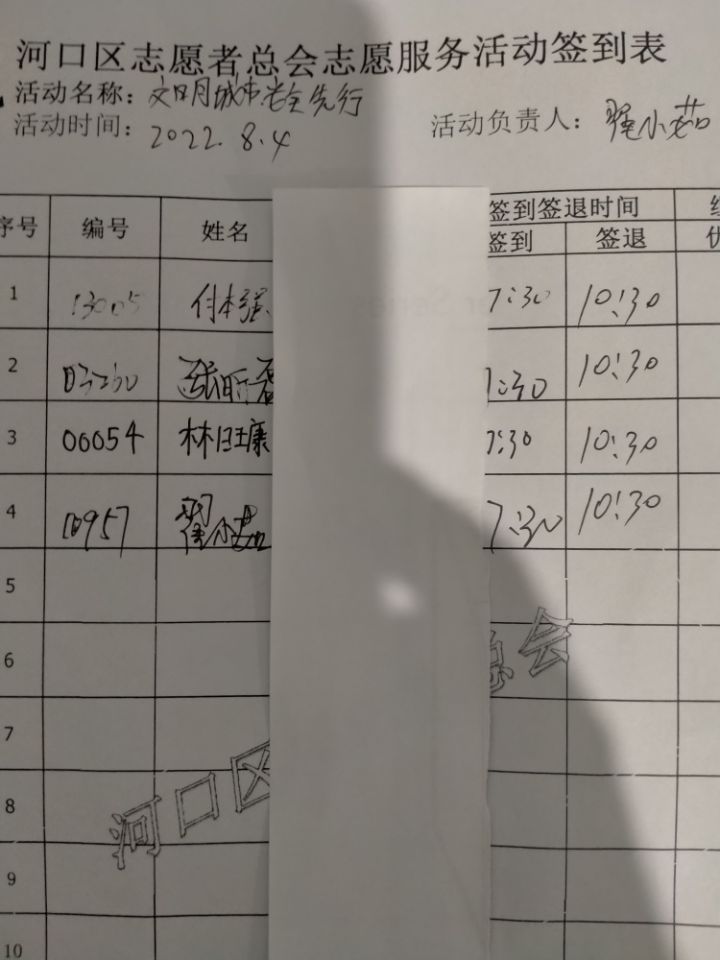 河口区志愿者总会志愿服务活动签到表
活动名称：文明城市安全先行
活动时间：2022.8.4
活动负责人：翟小茹
签到签退时间
序号 编号 姓名 签到 签退
1 13005 付本强 7:30 10:30
2 03230 7:30 10:30
3 00054 林旺康 7:30 10:30
4 10957 翟小茹 7:30 10:30
5
6
7
8
9
10
河口区 总会